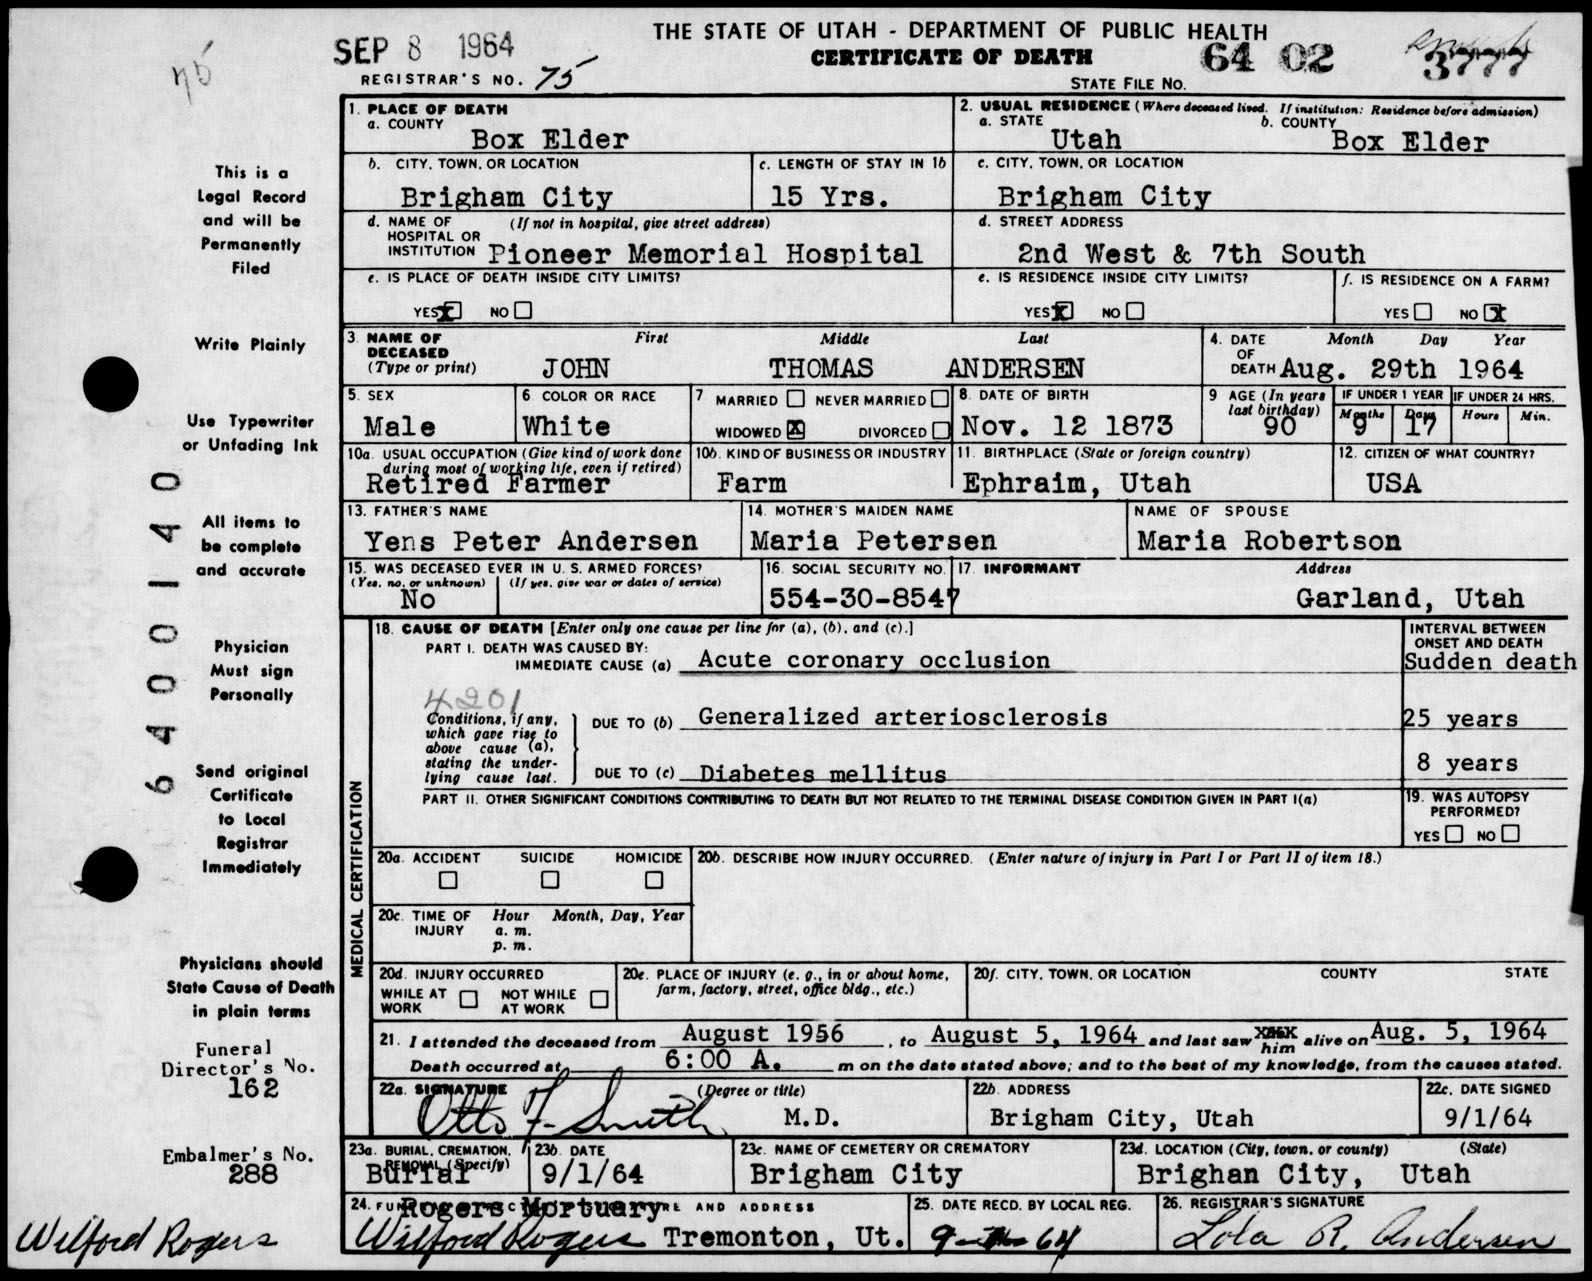 THE STATE OF UTAH - DEPARTMENT OF PUBLIC HEALTH
SEP 8 1964
CERTIFICATE OF DEATH
64 02 3777
REGISTRAR'S NO. 75
STATE FILE NO.
75
This is a
Legal Record
and will be
Permanently
Filed
Write Plainly
Use Typewriter
or Unfading Ink
All items to
be complete
and accurate
Physician
Must sign
Personally
Send original
Certificate
to Local
Registrar
Immediately
Physicians should
State Cause of Death
in plain terms
Funeral
Director's No.
162
Embalmer's No.
288
Wilford Rogers
6400140
1. PLACE OF DEATH
a. COUNTY
Box Elder
2. USUAL RESIDENCE (Where deceased lived. If institution: Residence before admission)
a. STATE b. COUNTY
Utah Box Elder
b. CITY, TOWN, OR LOCATION
Brigham City
c. LENGTH OF STAY IN 1b
15 Yrs.
c. CITY, TOWN, OR LOCATION
Brigham City
d. NAME OF (If not in hospital, give street address)
HOSPITAL OR
INSTITUTION Pioneer Memorial Hospital
d. STREET ADDRESS
2nd West & 7th South
e. IS PLACE OF DEATH INSIDE CITY LIMITS?
YES X NO
e. IS RESIDENCE INSIDE CITY LIMITS?
YES X NO
f. IS RESIDENCE ON A FARM?
YES NO X
3. NAME OF First Middle Last
DECEASED
(Type or print) JOHN THOMAS ANDERSEN
4. DATE Month Day Year
OF
DEATH Aug. 29th 1964
5. SEX
Male
6. COLOR OR RACE
White
7 MARRIED NEVER MARRIED
WIDOWED X DIVORCED
8. DATE OF BIRTH
Nov. 12 1873
9 AGE (In years
last birthday)
90
IF UNDER 1 YEAR
Months Days
9 17
IF UNDER 24 HRS.
Hours Min.
10a. USUAL OCCUPATION (Give kind of work done
during most of working life, even if retired)
Retired Farmer
10b. KIND OF BUSINESS OR INDUSTRY
Farm
11. BIRTHPLACE (State or foreign country)
Ephraim, Utah
12. CITIZEN OF WHAT COUNTRY?
USA
13. FATHER'S NAME
Yens Peter Andersen
14. MOTHER'S MAIDEN NAME
Maria Petersen
NAME OF SPOUSE
Maria Robertson
15. WAS DECEASED EVER IN U. S. ARMED FORCES?
(Yes, no, or unknown) (If yes, give war or dates of service)
No
16. SOCIAL SECURITY NO.
554-30-8547
17. INFORMANT Address
Garland, Utah
MEDICAL CERTIFICATION
18. CAUSE OF DEATH [Enter only one cause per line for (a), (b), and (c).]
PART I. DEATH WAS CAUSED BY:
IMMEDIATE CAUSE (a) Acute coronary occlusion
INTERVAL BETWEEN
ONSET AND DEATH
Sudden death
4201
Conditions, if any,
which gave rise to
above cause (a),
stating the under-
lying cause last.
DUE TO (b) Generalized arteriosclerosis
25 years
DUE TO (c) Diabetes mellitus
8 years
PART II. OTHER SIGNIFICANT CONDITIONS CONTRIBUTING TO DEATH BUT NOT RELATED TO THE TERMINAL DISEASE CONDITION GIVEN IN PART I(a)
19. WAS AUTOPSY
PERFORMED?
YES NO
20a. ACCIDENT SUICIDE HOMICIDE
20b. DESCRIBE HOW INJURY OCCURRED. (Enter nature of injury in Part I or Part II of item 18.)
20c. TIME OF Hour Month, Day, Year
INJURY a. m.
p. m.
20d. INJURY OCCURRED
WHILE AT NOT WHILE
WORK AT WORK
20e. PLACE OF INJURY (e. g., in or about home,
farm, factory, street, office bldg., etc.)
20f. CITY, TOWN, OR LOCATION COUNTY STATE
21. I attended the deceased from August 1956, to August 5, 1964 and last saw him alive on Aug. 5, 1964
Death occurred at 6:00 A. m on the date stated above; and to the best of my knowledge, from the causes stated.
22a. SIGNATURE (Degree or title)
Otto F. Smith M.D.
22b. ADDRESS
Brigham City, Utah
22c. DATE SIGNED
9/1/64
23a. BURIAL, CREMATION,
REMOVAL (Specify)
Burial
23b. DATE
9/1/64
23c. NAME OF CEMETERY OR CREMATORY
Brigham City
23d. LOCATION (City, town, or county) (State)
Brighan City, Utah
24. AND ADDRESS
Rogers Mortuary
Wilford Rogers Tremonton, Ut.
25. DATE RECD. BY LOCAL REG.
64
26. REGISTRAR'S SIGNATURE
Lola R. Andersen